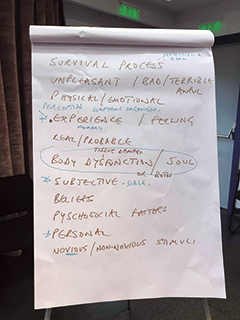 PROTECTION &
SURVIVAL PROCESS
UNPLEASANT / BAD/TERRIBLE
AWFUL
PHYSICAL/EMOTIONAL
PERCEPTION
* EXPERIENCE / FEELING
MEMORY
REAL/PROBABLE
TISSUE DAMAGE
BODY DYSFUNCTION/ SOUL
OR BOTH
* SUBJECTIVE -
BELIEFS
PYSCHOSOCIAL FACTORS
* PERSONAL
NOXIOUS/NON-NOXIOUS STIMULI